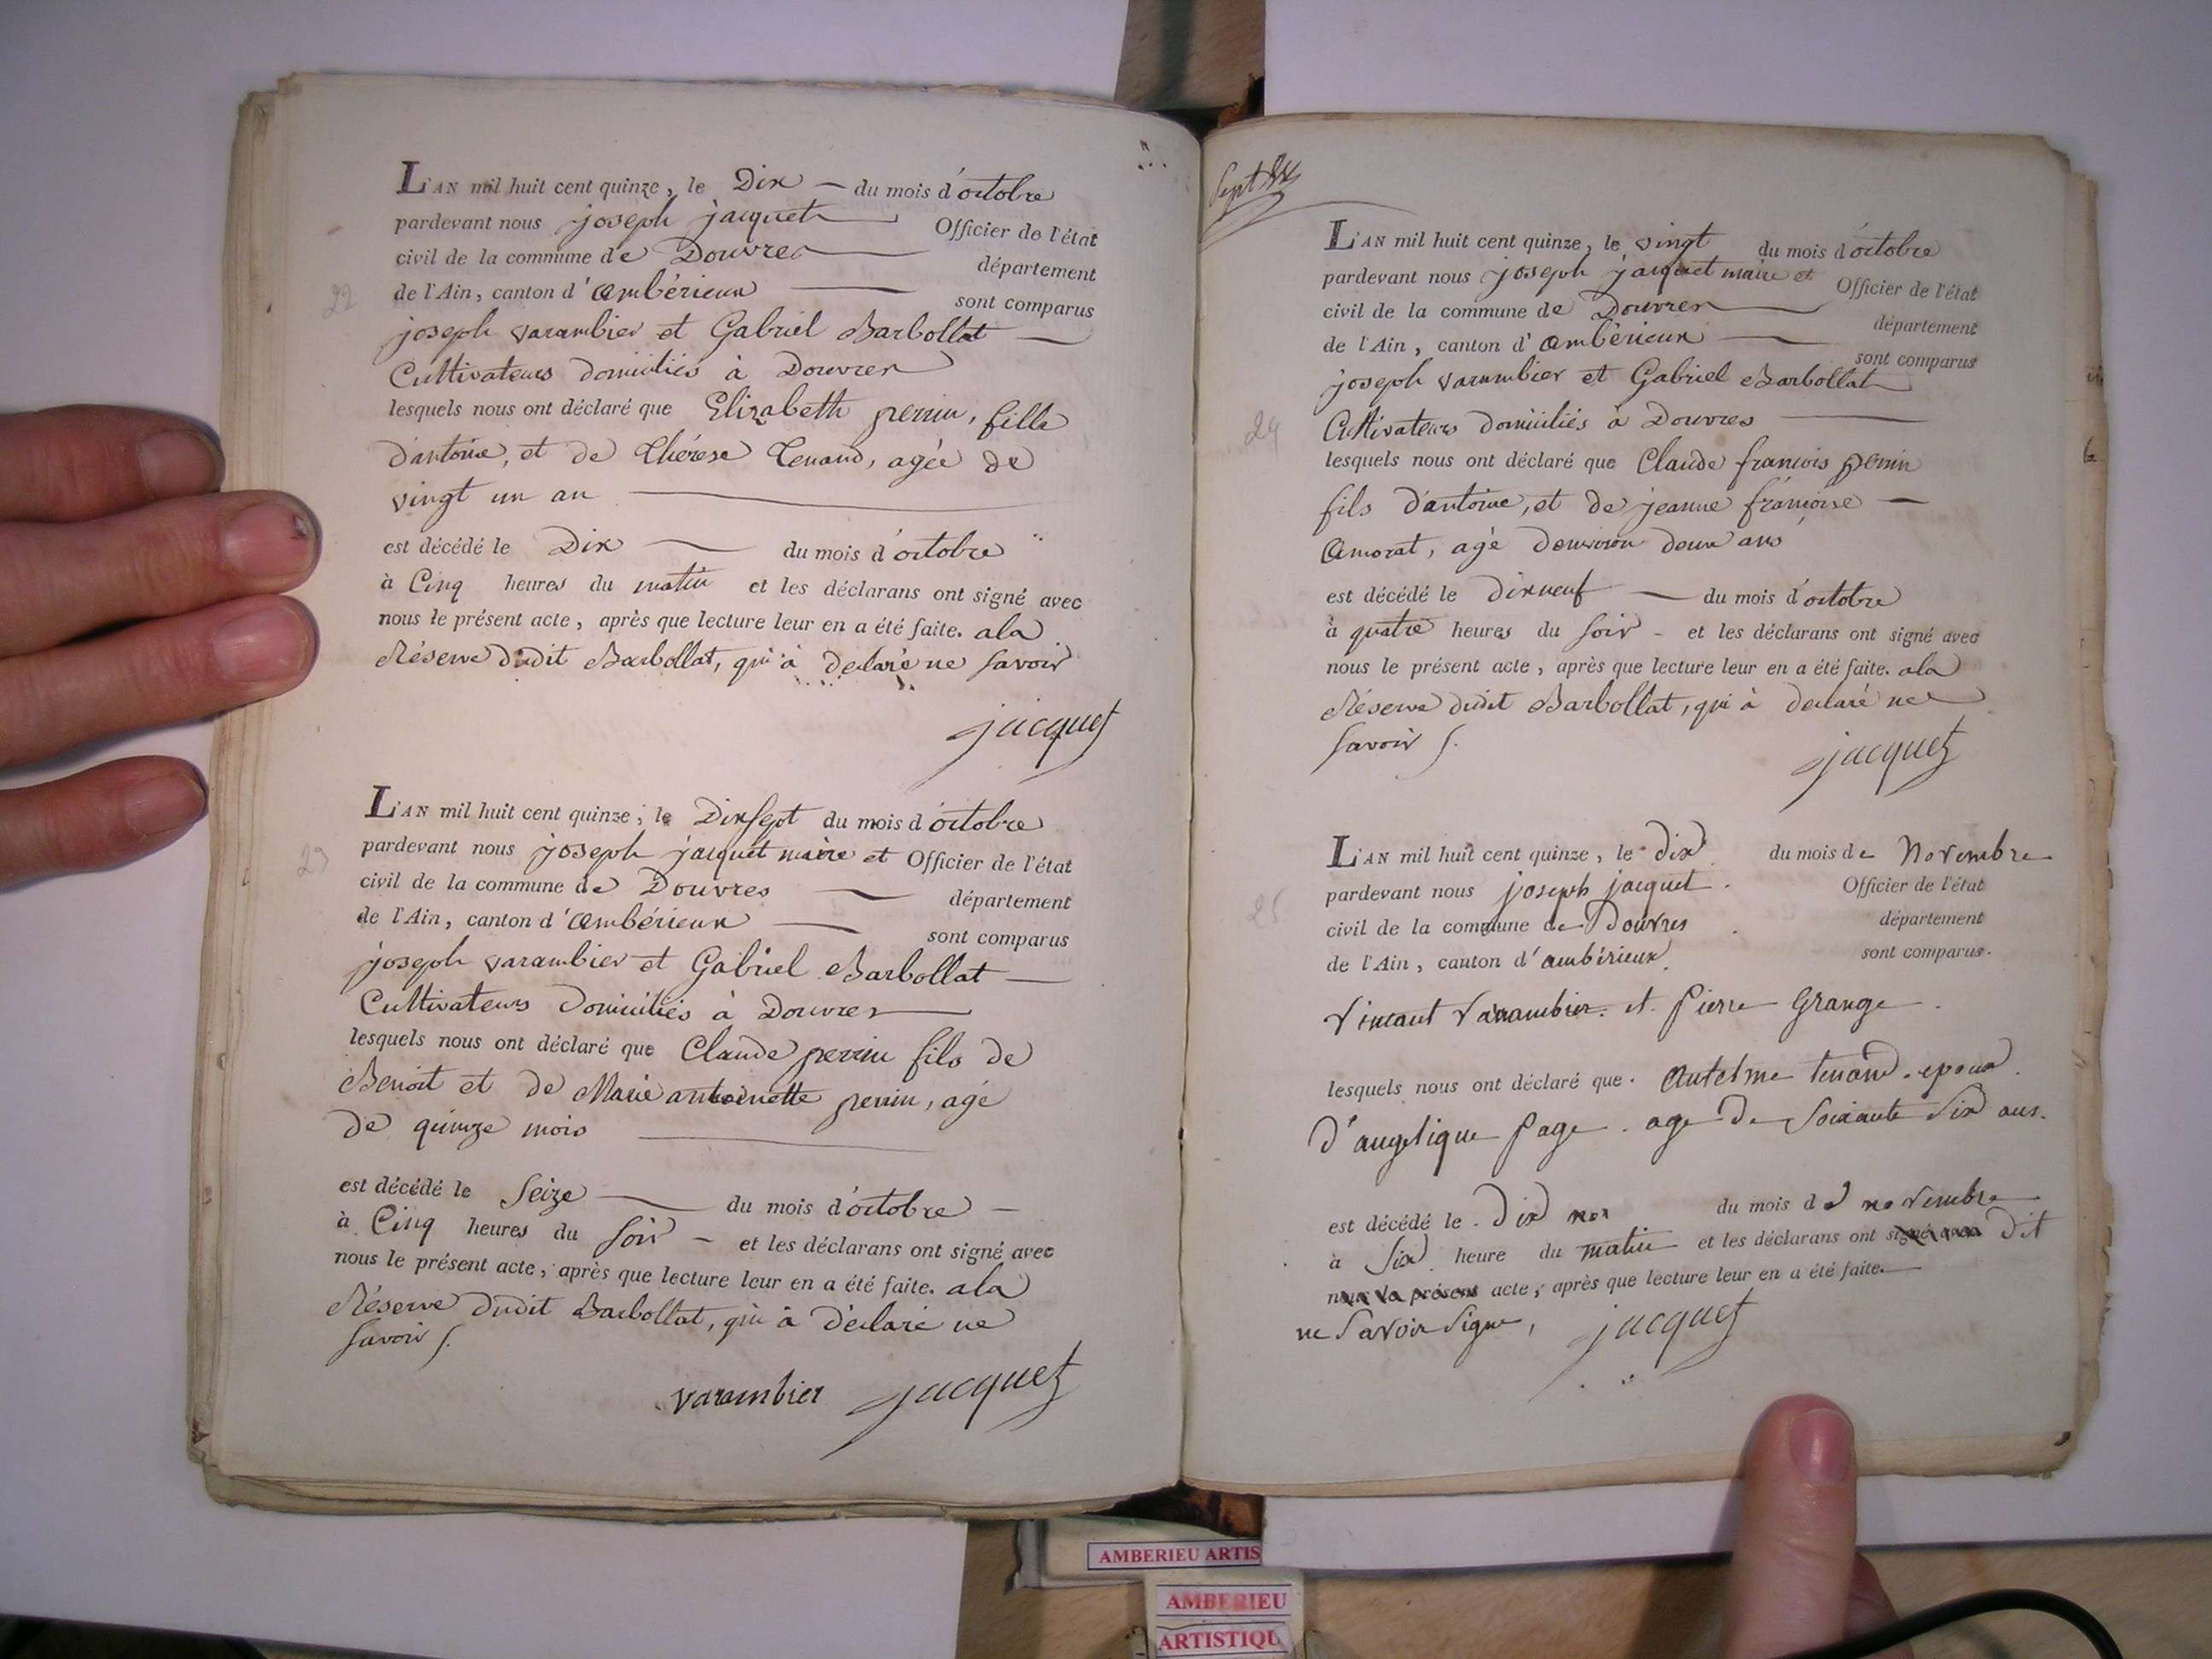 L'AN mil huit cent quinze, le Dix du mois d'octobre
pardevant nous joseph jacquet Officier de l'état
civil de la commune de Douvres département
de l'Ain, canton d'ambérieux sont comparus
joseph varambier et Gabriel Barbollat
Cultivateurs domiciliés à Douvres
lesquels nous ont déclaré que Elizabeth perrin, fille
d'antoine, et de Thérese Tenand, agée de
vingt un an
est décédé le Dix du mois d'octobre
à Cinq heures du matin et les déclarans ont signé avec
nous le présent acte, après que lecture leur en a été faite. ala
Réserve dudit Barbollat, qui à déclaré ne savoir
jacquet
22
L'AN mil huit cent quinze, le Dixsept du mois d'octobre
pardevant nous joseph jacquet maire et Officier de l'état
civil de la commune de Douvres département
de l'Ain, canton d'ambérieux sont comparus
joseph varambier et Gabriel Barbollat
Cultivateurs domiciliés à Douvres
lesquels nous ont déclaré que Claude perrin fils de
Benoit et de Marie antoinette perrin, agé
de quinze mois
est décédé le Seize du mois d'octobre
à Cinq heures du soir et les déclarans ont signé avec
nous le présent acte, après que lecture leur en a été faite. ala
Réserve dudit Barbollat, qui à déclaré ne
savoir s.
varambier jacquet
23
L'AN mil huit cent quinze, le vingt du mois d'octobre
pardevant nous joseph jacquet maire et Officier de l'état
civil de la commune de Douvres département
de l'Ain, canton d'ambérieux sont comparus
joseph varambier et Gabriel Barbollat
Cultivateurs domiciliés à Douvres
lesquels nous ont déclaré que Claude francois perrin
fils d'antoine, et de jeanne françoise
amorat, agé denviron deux ans
est décédé le dixneuf du mois d'octobre
à quatre heures du soir et les déclarans ont signé avec
nous le présent acte, après que lecture leur en a été faite. ala
Réserve dudit Barbollat, qui à déclaré ne
savoir s.
jacquet
24
L'AN mil huit cent quinze, le dix du mois de Novembre
pardevant nous joseph jacquet Officier de l'état
civil de la commune de Douvres département
de l'Ain, canton d'ambérieux sont comparus.
Vincant Varambier. et. Pierre Grange
lesquels nous ont déclaré que. Antelme tenand. epoux
d'angelique page. age De Soixante Six ans.
est décédé le Dix nov du mois de novembre
à Six heure du matin et les déclarans ont signé avec Dit
nous le présent acte, après que lecture leur en a été faite.
ne Savoir Signe, jacquet
25
AMBERIEU ARTIS
AMBERIEU
ARTISTIQU